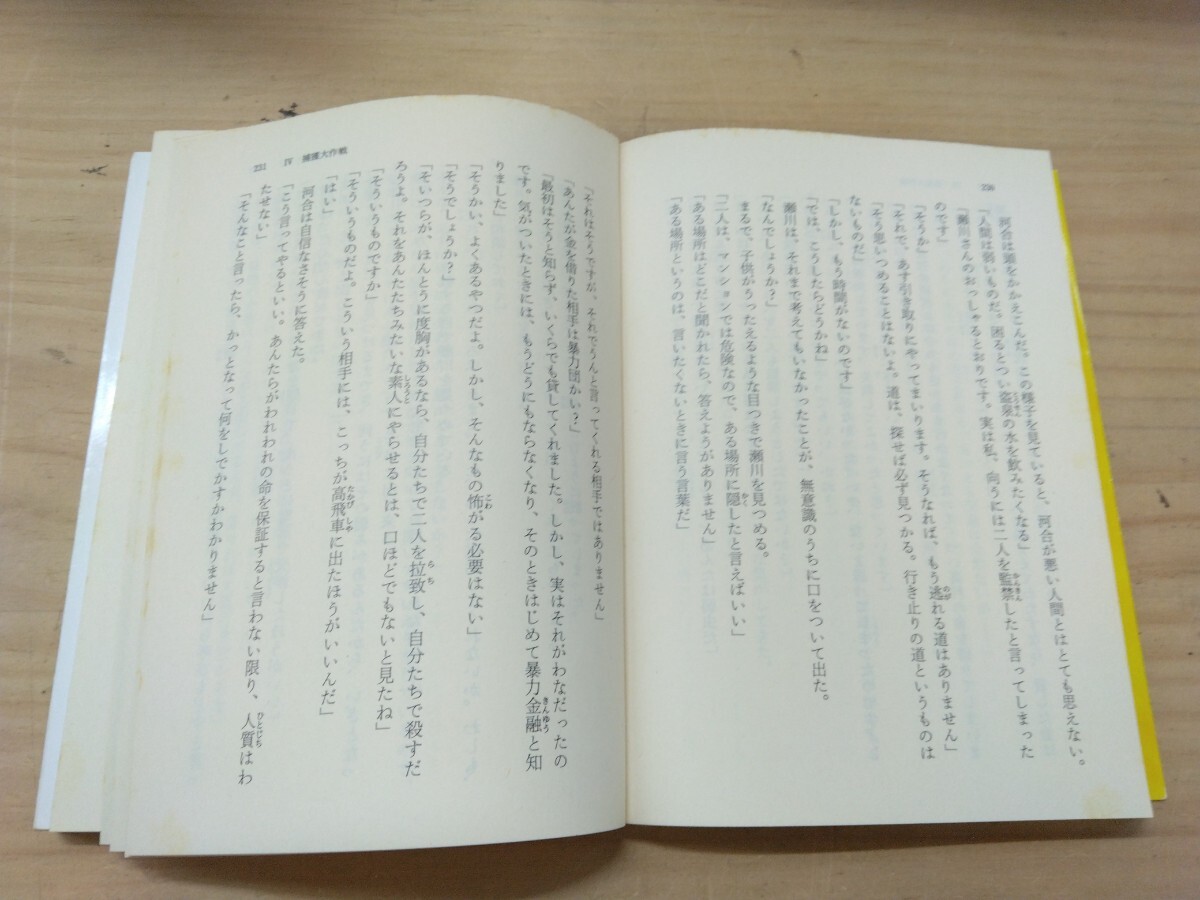 220
河合は頭をかかえこんだ。この様子を見ていると、河合が悪い人間とはとても思えない。
「人間は弱いものだ。困るとつい盗泉の水を飲みたくなる」
「瀬川さんのおっしゃるとおりです。実は私、向うには二人を監禁したと言ってしまった
のです」
「そうか」
「それで、あす引き取りにやってまいります。そうなれば、もう逃れる道はありません」
「そう思いつめることはないよ。道は、探せば必ず見つかる。行き止りの道というものは
ないものだ」
「しかし、もう時間がないのです」
「では、こうしたらどうかね」
瀬川は、それまで考えてもいなかったことが、無意識のうちに口をついて出た。
「なんでしょうか？」
まるで、子供がうったえるような目つきで瀬川を見つめる。
「二人は、マンションでは危険なので、ある場所に隠したと言えばいい」
「ある場所はどこだと聞かれたら、答えようがありません」
「ある場所というのは、言いたくないときに言う言葉だ」
221 Ⅳ 捕獲大作戦
「それはそうですが、それでうんと言ってくれる相手ではありません」
「あんたが金を借りた相手は暴力団かい？」
「最初はそうと知らず、いくらでも貸してくれました。しかし、実はそれがわなだったの
です。気がついたときには、もうどうにもならなくなり、そのときはじめて暴力金融と知
りました」
「そうかい、よくあるやつだよ。しかし、そんなもの怖がる必要はない」
「そうでしょうか？」
「そいつらが、ほんとうに度胸があるなら、自分たちで二人を拉致し、自分たちで殺すだ
ろうよ。それをあんたたちみたいな素人にやらせるとは、口ほどでもないと見たね」
「そういうものですか」
「そういうものだよ。こういう相手には、こっちが高飛車に出たほうがいいんだ」
「はい」
河合は自信なさそうに答えた。
「こう言ってやるといい。あんたらがわれわれの命を保証すると言わない限り、人質はわ
たせない」
「そんなこと言ったら、かっとなって何をしでかすかわかりません」